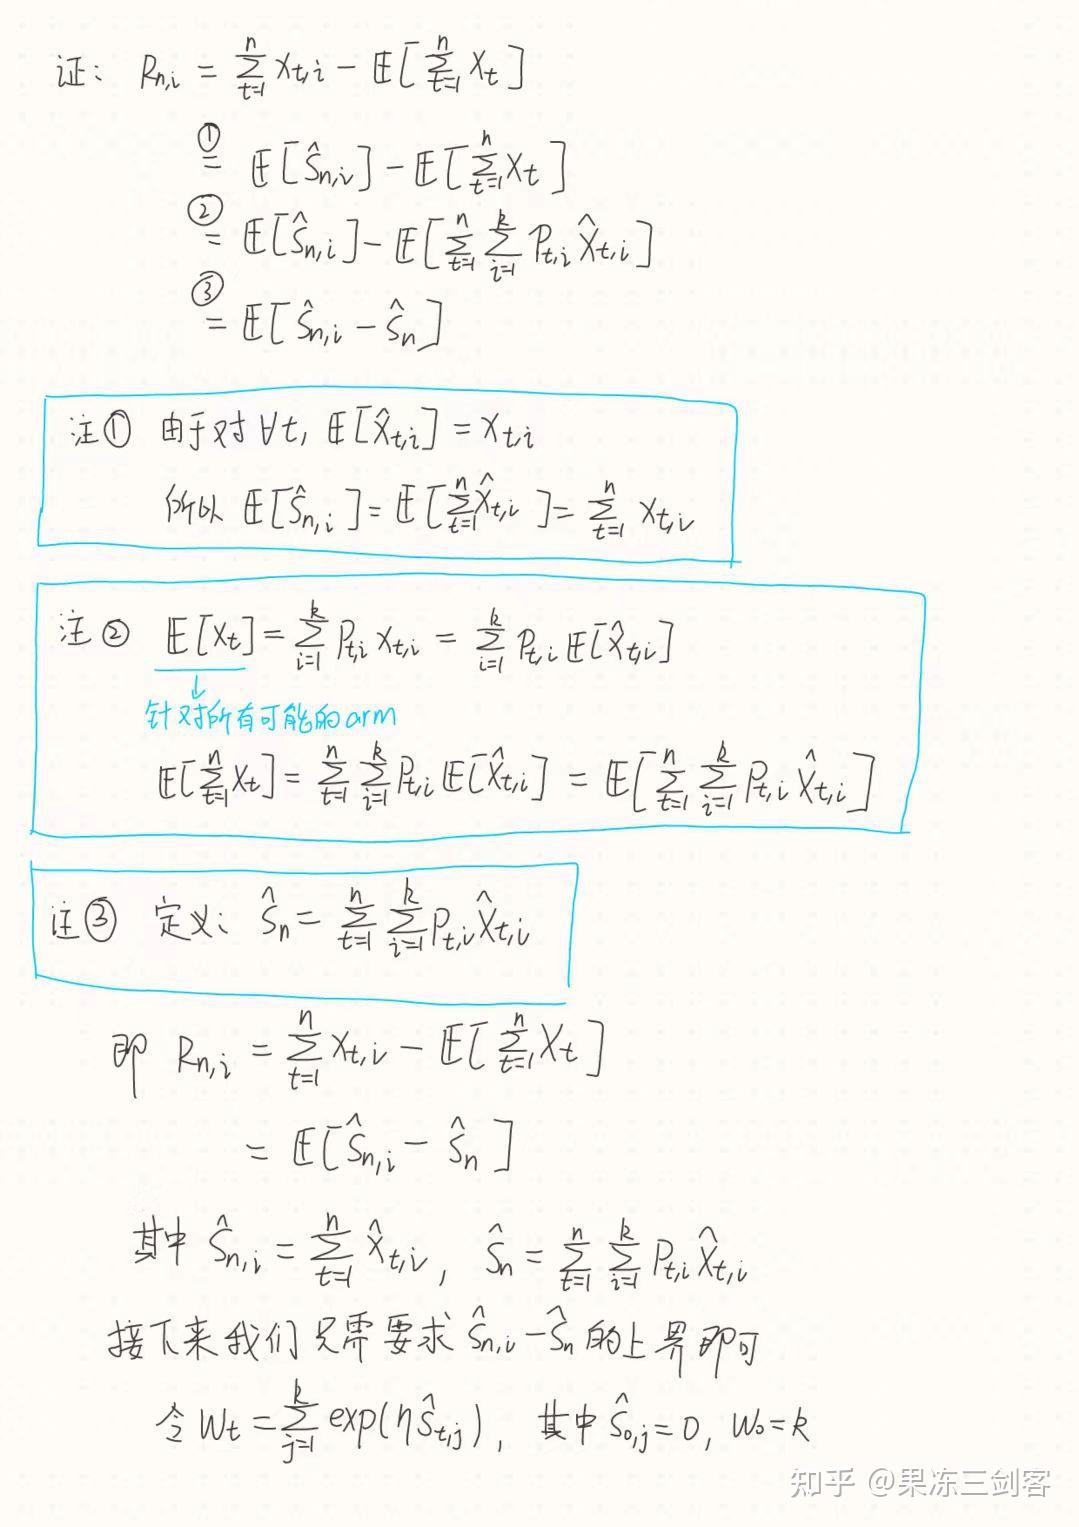 证: R_{n,i} = \sum_{t=1}^{n} x_{t,i} - 𝔼[\sum_{t=1}^{n} X_t]
①= 𝔼[\hat{S}_{n,i}] - 𝔼[\sum_{t=1}^{n} X_t]
②= 𝔼[\hat{S}_{n,i}] - 𝔼[\sum_{t=1}^{n} \sum_{i=1}^{k} P_{t,i} \hat{X}_{t,i}]
③= 𝔼[\hat{S}_{n,i} - \hat{S}_n]
注① 由于对 ∀t, 𝔼[\hat{X}_{t,i}] = x_{t,i}
所以 𝔼[\hat{S}_{n,i}] = 𝔼[\sum_{t=1}^{n} \hat{X}_{t,i}] = \sum_{t=1}^{n} x_{t,i}
注② 𝔼[X_t] = \sum_{i=1}^{k} P_{t,i} x_{t,i} = \sum_{i=1}^{k} P_{t,i} 𝔼[\hat{X}_{t,i}]
↓
针对所有可能的arm
𝔼[\sum_{t=1}^{n} X_t] = \sum_{t=1}^{n} \sum_{i=1}^{k} P_{t,i} 𝔼[\hat{X}_{t,i}] = 𝔼[\sum_{t=1}^{n} \sum_{i=1}^{k} P_{t,i} \hat{X}_{t,i}]
注③ 定义: \hat{S}_n = \sum_{t=1}^{n} \sum_{i=1}^{k} P_{t,i} \hat{X}_{t,i}
即 R_{n,i} = \sum_{t=1}^{n} x_{t,i} - 𝔼[\sum_{t=1}^{n} X_t]
= 𝔼[\hat{S}_{n,i} - \hat{S}_n]
其中 \hat{S}_{n,i} = \sum_{t=1}^{n} \hat{X}_{t,i}, \hat{S}_n = \sum_{t=1}^{n} \sum_{i=1}^{k} P_{t,i} \hat{X}_{t,i}
接下来我们只需要求 \hat{S}_{n,i} - \hat{S}_n 的上界即可
令 W_t = \sum_{j=1}^{k} exp(η\hat{S}_{t,j}), 其中 \hat{S}_{0,j} = 0, W_0 = k
知乎 @果冻三剑客